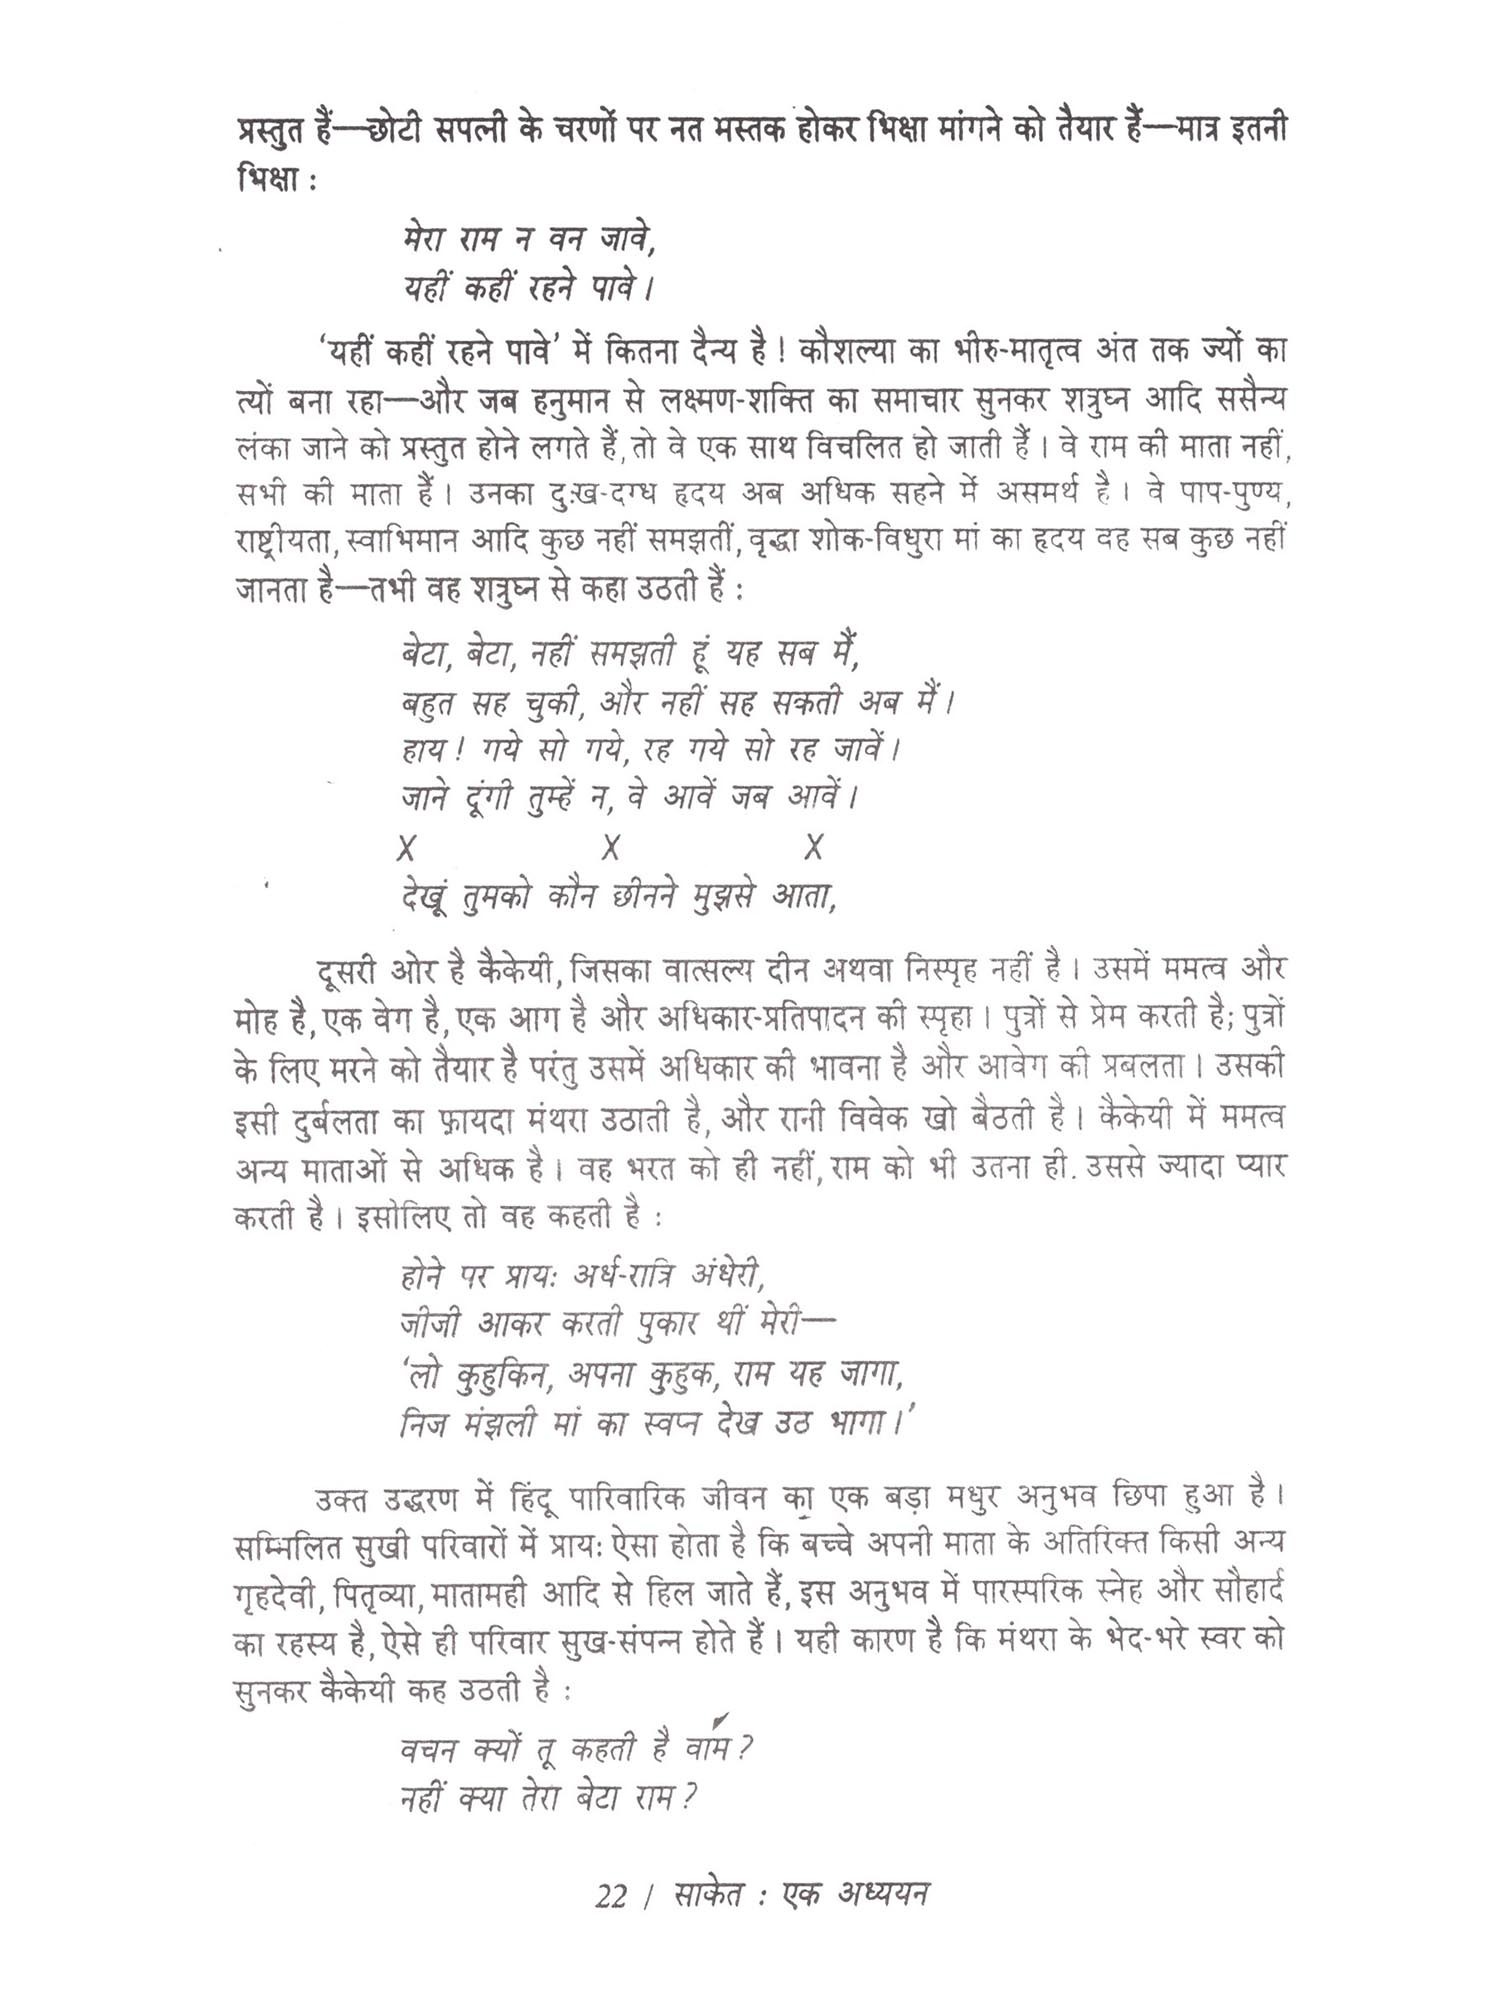 प्रस्तुत हैं—छोटी सपत्नी के चरणों पर नत मस्तक होकर भिक्षा मांगने को तैयार हैं—मात्र इतनी
भिक्षा :
मेरा राम न वन जावे,
यहीं कहीं रहने पावे।
‘यहीं कहीं रहने पावे’ में कितना दैन्य है! कौशल्या का भीरु-मातृत्व अंत तक ज्यों का
त्यों बना रहा—और जब हनुमान से लक्ष्मण-शक्ति का समाचार सुनकर शत्रुघ्न आदि ससैन्य
लंका जाने को प्रस्तुत होने लगते हैं, तो वे एक साथ विचलित हो जाती हैं। वे राम की माता नहीं,
सभी की माता हैं। उनका दुःख-दग्ध हृदय अब अधिक सहने में असमर्थ है। वे पाप-पुण्य,
राष्ट्रीयता, स्वाभिमान आदि कुछ नहीं समझतीं, वृद्धा शोक-विधुरा मां का हृदय वह सब कुछ नहीं
जानता है—तभी वह शत्रुघ्न से कहा उठती हैं :
बेटा, बेटा, नहीं समझती हूं यह सब मैं,
बहुत सह चुकी, और नहीं सह सकती अब मैं।
हाय! गये सो गये, रह गये सो रह जावें।
जाने दूंगी तुम्हें न, वे आवें जब आवें।
X X X
देखूं तुमको कौन छीनने मुझसे आता,
दूसरी ओर है कैकेयी, जिसका वात्सल्य दीन अथवा निस्पृह नहीं है। उसमें ममत्व और
मोह है, एक वेग है, एक आग है और अधिकार-प्रतिपादन की स्पृहा। पुत्रों से प्रेम करती है; पुत्रों
के लिए मरने को तैयार है परंतु उसमें अधिकार की भावना है और आवेग की प्रबलता। उसकी
इसी दुर्बलता का फ़ायदा मंथरा उठाती है, और रानी विवेक खो बैठती है। कैकेयी में ममत्व
अन्य माताओं से अधिक है। वह भरत को ही नहीं, राम को भी उतना ही. उससे ज्यादा प्यार
करती है। इसोलिए तो वह कहती है :
होने पर प्रायः अर्ध-रात्रि अंधेरी,
जीजी आकर करती पुकार थीं मेरी—
‘लो कुहुकिन, अपना कुहुक, राम यह जागा,
निज मंझली मां का स्वप्न देख उठ भागा।’
उक्त उद्धरण में हिंदू पारिवारिक जीवन का एक बड़ा मधुर अनुभव छिपा हुआ है।
सम्मिलित सुखी परिवारों में प्रायः ऐसा होता है कि बच्चे अपनी माता के अतिरिक्त किसी अन्य
गृहदेवी, पितृव्या, मातामही आदि से हिल जाते हैं, इस अनुभव में पारस्परिक स्नेह और सौहार्द
का रहस्य है, ऐसे ही परिवार सुख-संपन्न होते हैं। यही कारण है कि मंथरा के भेद-भरे स्वर को
सुनकर कैकेयी कह उठती है :
वचन क्यों तू कहती है वाम?
नहीं क्या तेरा बेटा राम?
22 / साकेत : एक अध्ययन